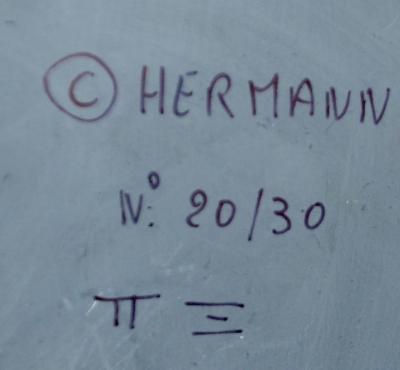 © HERMANN
N.º 20/30
π Ξ